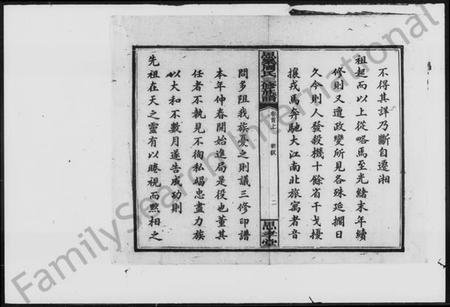 不得其詳乃斷自遷湘
祖起而以上從略焉至光緒末年續
修則又遭政變所見各殊延擱日
久今則人發殺機十餘省干戈擾
攘戎馬奔馳大江南北旅寓者音
卷首上 新敘 二
思孝堂
問多阻我族憂之則議三修印譜
本年仲春開始進局是役也董其
任者不執見不徇私竭忠盡力族
以大和不數月遂告成功則
先祖在天之靈有以勝視而默相之
FamilySearch International